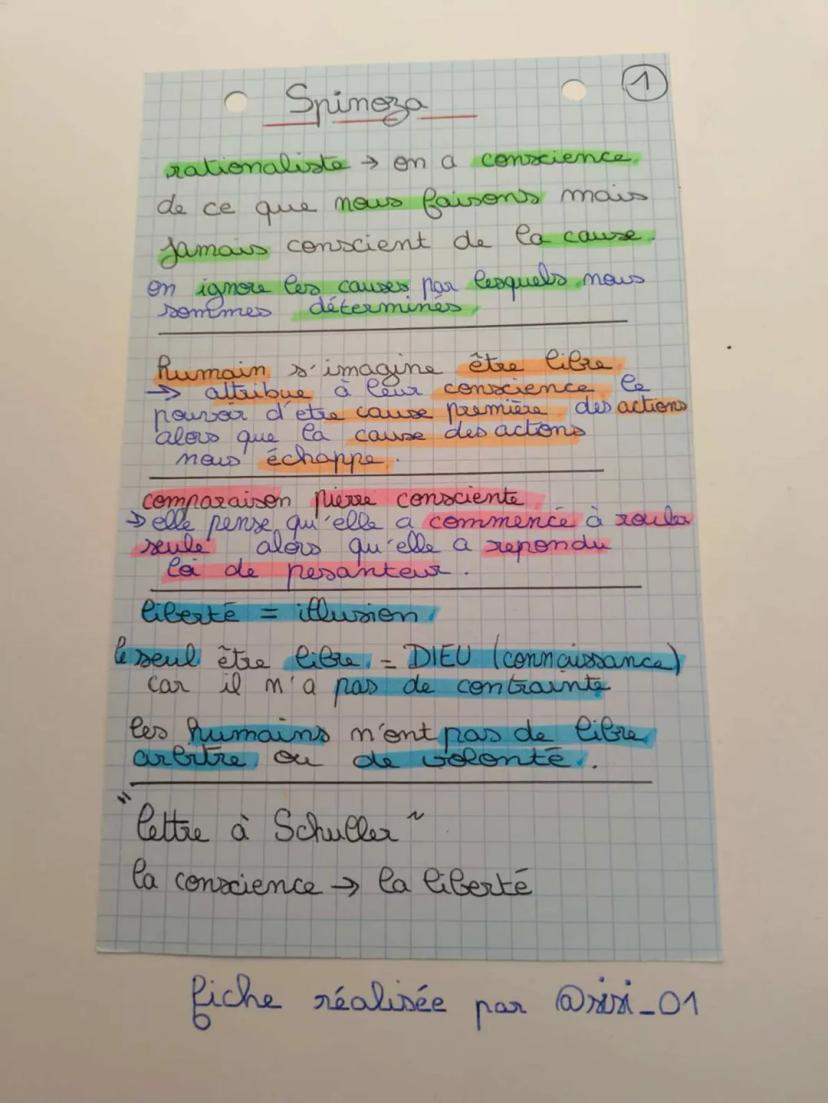 1
Spinoza
rationaliste → on a conscience
de ce que nous faisons mais
jamais conscient de la cause.
on ignore les causes par lesquels nous
sommes déterminés
humain s'imagine être libre
→ attribue à leur conscience le
pouvoir d'etre cause première des actions
alors que la cause des actions
nous échappe.
comparaison pierre consciente
→ elle pense qu'elle a commencé à rouler
seule alors qu'elle a repondu
loi de pesanteur.
liberté = illusion
le seul être libre = DIEU (connaissance)
car il n'a pas de contrainte
les humains n'ont pas de libre
arbitre ou de volonté.
"lettre à Schuller"
la conscience → la liberté
fiche réalisée par @sisi_01